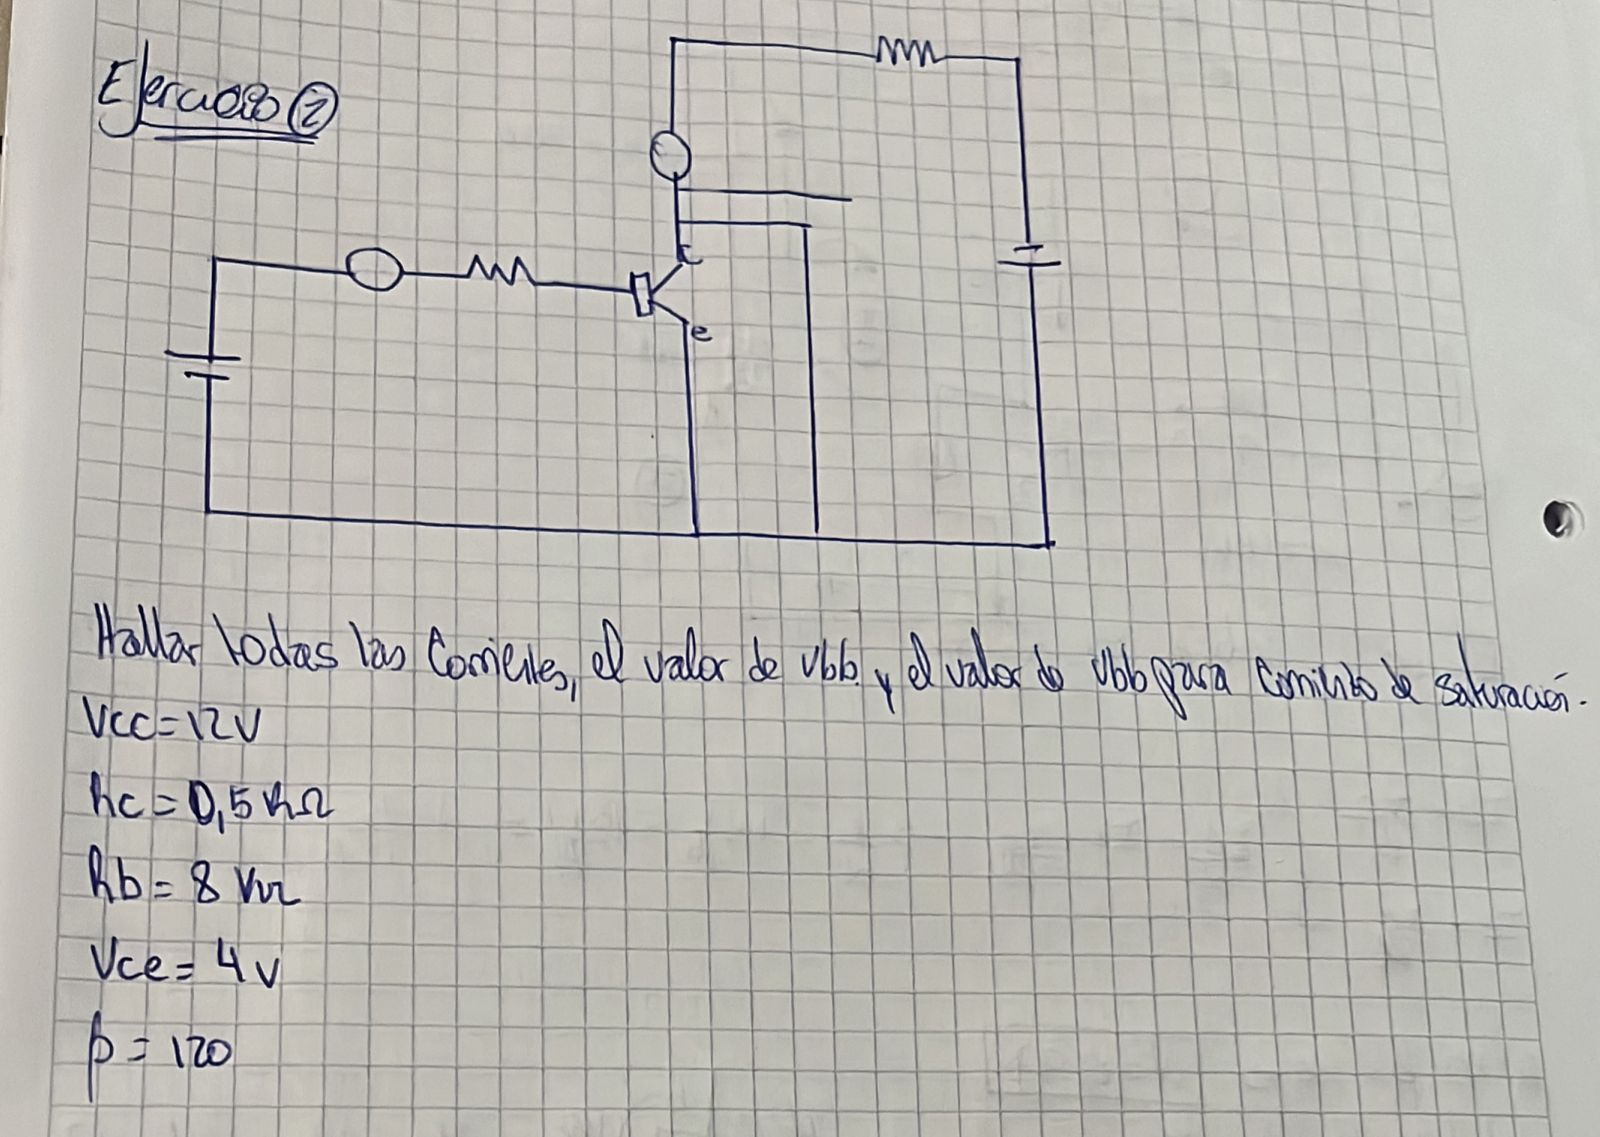 Ejercicio 2
c
e
Hallar todas las Corrientes, el valor de Vbb y el valor de Vbb para corriente de saturación.
Vcc=12V
Rc=0,5 kΩ
Rb=8 kΩ
Vce=4v
β=120